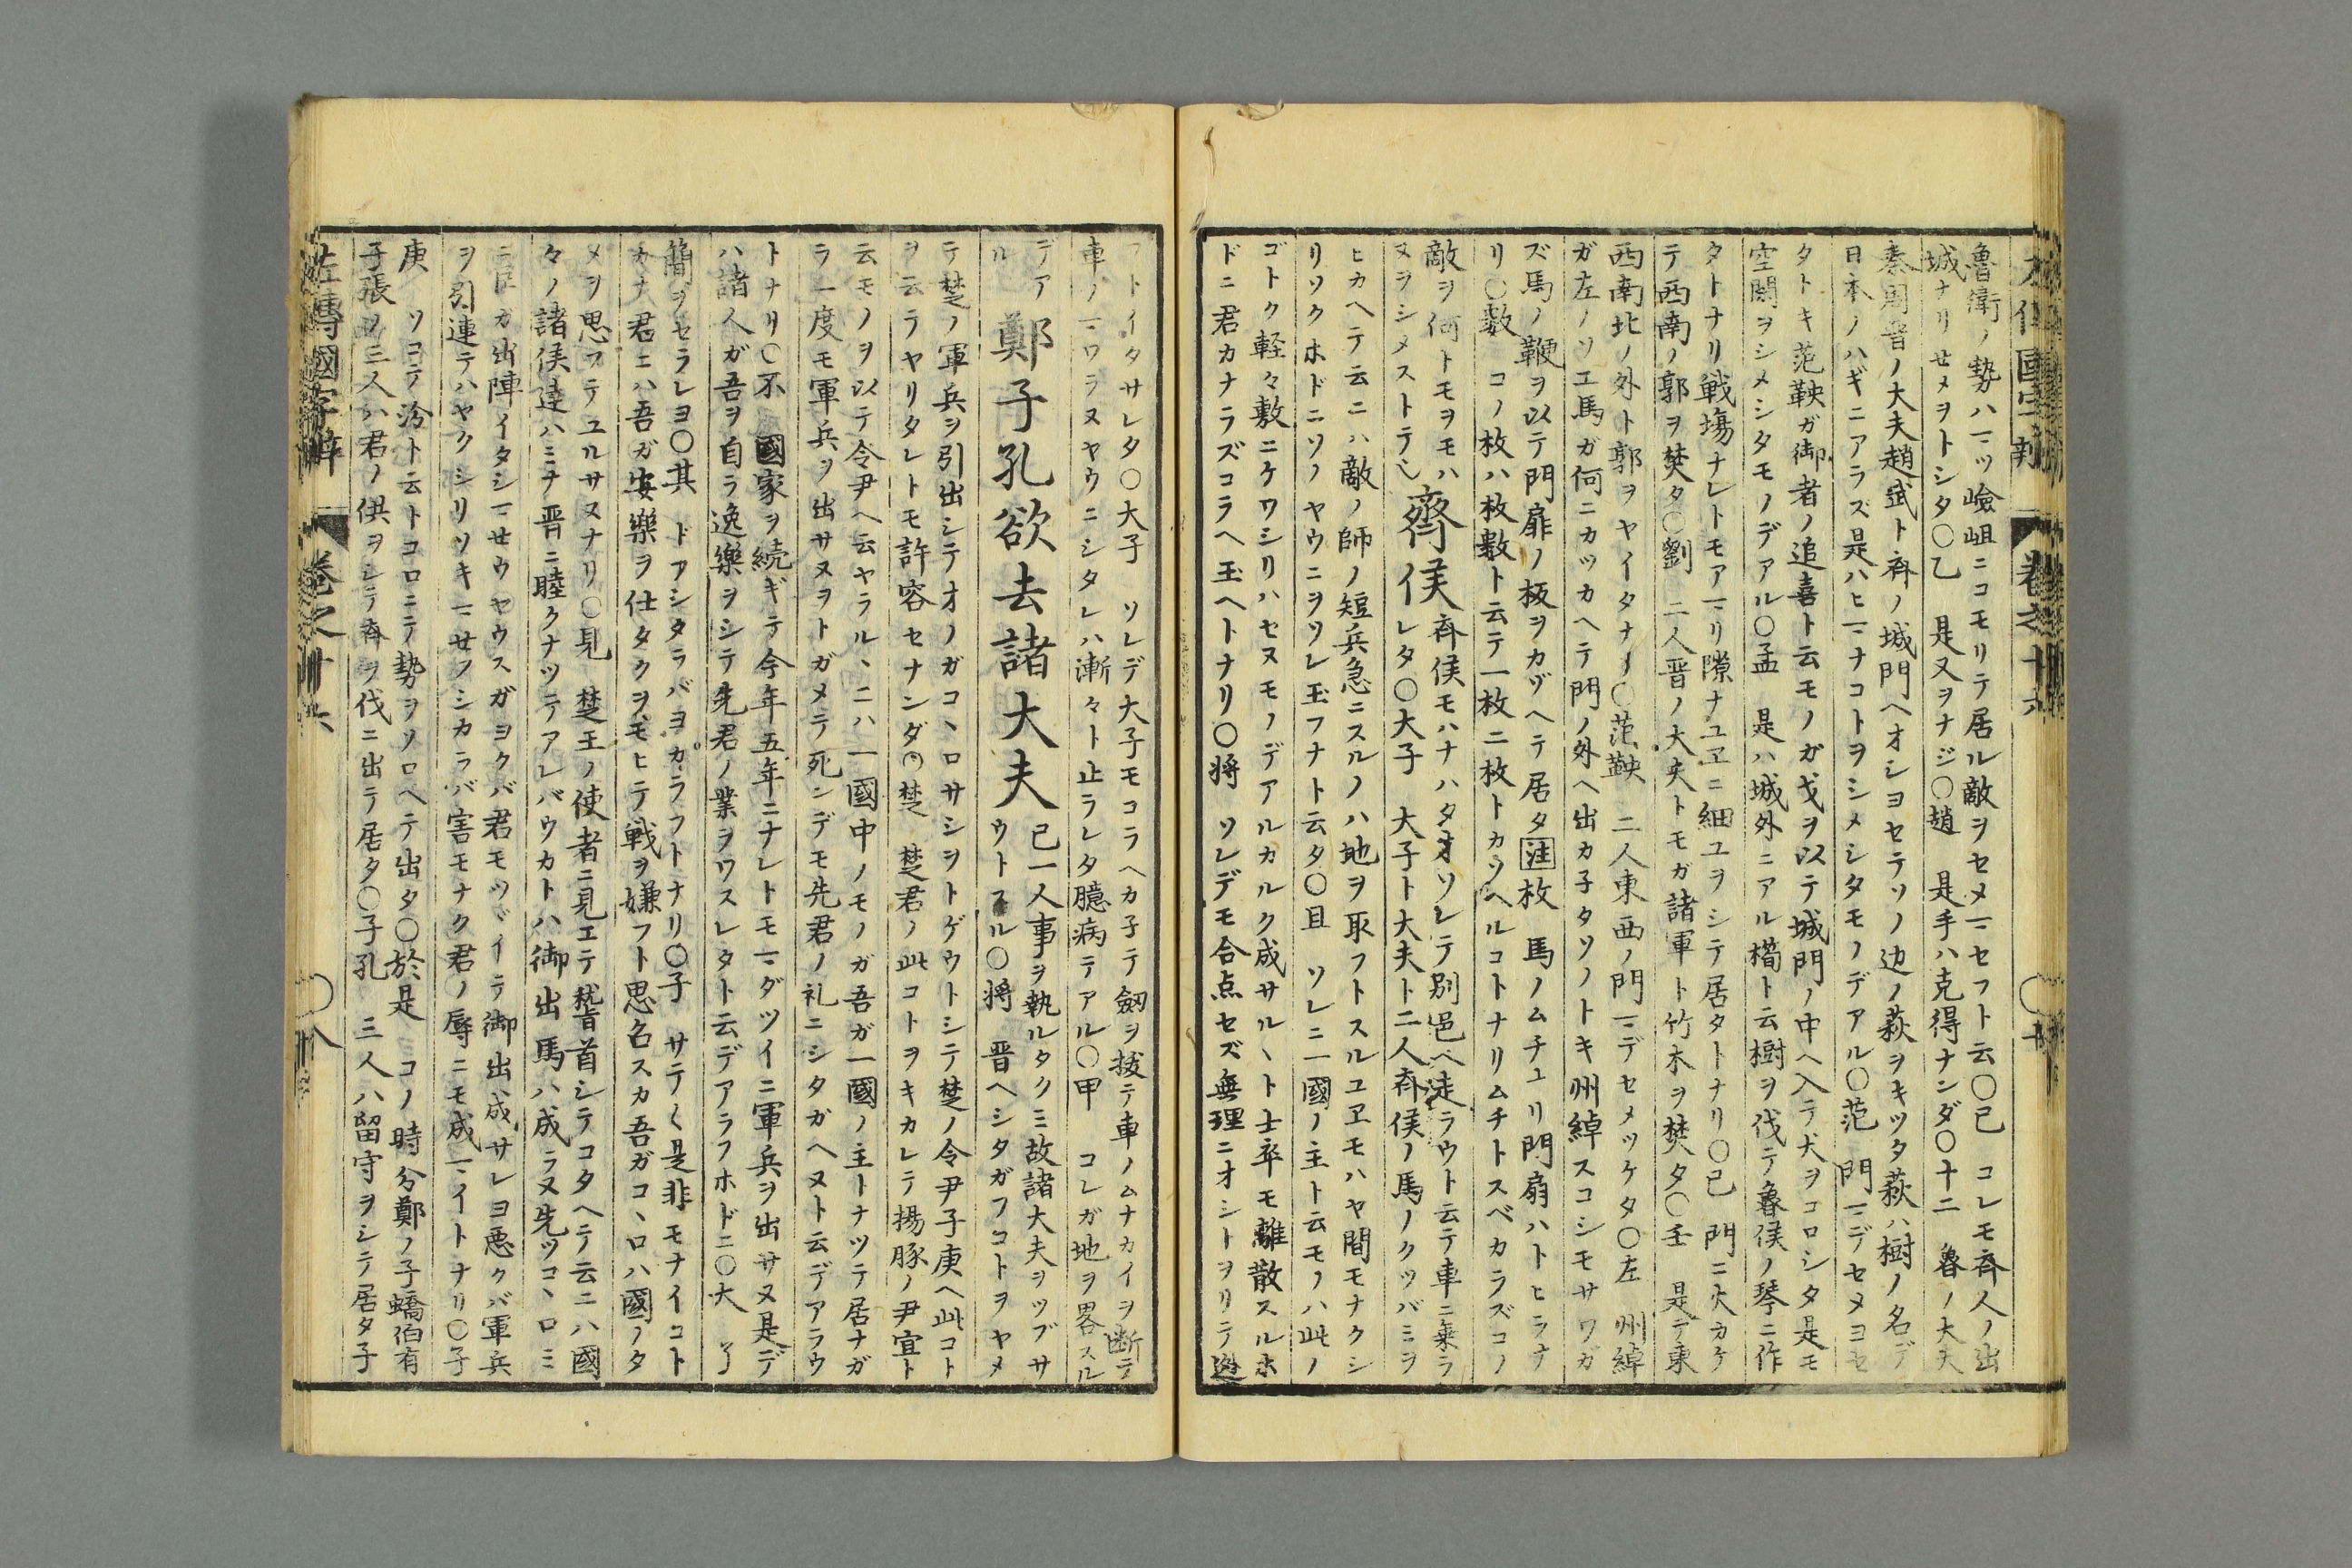 魯衛ノ勢ハマヅ嶮岨ニコモリテ居ル敵ヲセメマセフト云〇已 コレモ斉人ノ出
城ナリせメヲトシタ〇乙 是又ヲナジ〇趙 是手ハ克得ナンダ〇十二 魯ノ大夫
秦周晋ノ大夫趙武ト斉ノ城門ヘオシヨセテソノ辺ノ萩ヲキツタ萩ハ樹ノ名デ
日本ノハギニアラズ是ハヒマナコトヲシメシタモノデアル〇范 門マデセメヨセ
タトキ范鞅ガ御者ノ追喜ト云モノガ戈ヲ以テ城門ノ中ヘ入テ犬ヲコロシタ是モ
空間ヲシメシタモノデアル〇孟 是ハ城外ニアル橁ト云樹ヲ伐テ魯侯ノ琴ニ作
タトナリ戦塲ナレトモアマリ隙ナユヱニ細ユヲシテ居タトナリ〇已 門ニ火カケ
テ西南ノ郭ヲ焚タ〇劉 二人晋ノ大夫トモガ諸軍ト竹木ヲ焚タ〇壬 是デ東
西南北ノ外ト郭ヲヤイタナリ〇范鞅 二人東西ノ門マデセメツケタ〇左 州綽
ガ左ノソエ馬ガ何ニカツカヘテ門ノ外ヘ出カ子タソノトキ州綽スコシモサワガ
ズ馬ノ鞭ヲ以テ門扉ノ板ヲカゾヘテ居タ注枚 馬ノムチユリ門扇ハトヒラナ
リ〇数 コノ枚ハ枚数ト云テ一枚二枚トカゾヘルコトナリムチトスベカラズコノ
敵ヲ何トモヲモハ
ヌヲシメストテシ
齊侯
斉侯モハナハタオソレテ別邑ヘ走ラウト云テ車ニ乗ラ
レタ〇大子 大子ト大夫ト二人斉侯ノ馬ノクツバミヲ
ヒカヘテ云ニハ敵ノ師ノ短兵急ニスルノハ地ヲ取フトスルユヱモハヤ間モナクシ
リソクホドニソノヤウニヲソレ玉フナト云タ〇且 ソレニ一國ノ主ト云モノハ此ノ
ゴトク軽々敷ニケワシリハセヌモノデアルカルク成サルヽト士卒モ離散スルホ
ドニ君カナラズコラヘ玉ヘトナリ〇将 ソレデモ合点セズ無理ニオシトヲリテ逃
フトイタサレタ〇大子 ソレデ大子モコラヘカ子テ劔ヲ抜テ車ノムナカイヲ断テ
車ノマワラヌヤウニシタレハ漸々ト止ラレタ臆病テアル〇甲 コレガ地ヲ畧スル
デア
ル
鄭子孔欲去諸大夫
已一人事ヲ執ルタクミ故諸大夫ヲツブサ
ウトスル〇将 晋ヘシタガフコトヲヤメ
テ楚ノ軍兵ヲ引出シテオノガコヽロサシヲトゲウトシテ楚ノ令尹子庚ヘ此コト
ヲ云ラヤリタレトモ許容セナンダ〇楚 楚君ノ此コトヲキカレテ揚豚ノ尹宜ト
云モノヲ以テ令尹ヘ云ヤラルヽニハ一國中ノモノガ吾ガ一國ノ主トナツテ居ナガ
ラ一度モ軍兵ヲ出サヌヲトガメテ死ンデモ先君ノ礼ニシタガヘヌト云デアラウ
トナリ〇不 國家ヲ続ギテ今年五年ニナレトモマダツイニ軍兵ヲ出サヌ是デ
ハ諸人ガ吾ヲ自ラ逸樂ヲシテ先君ノ業ヲワスレタト云デアラフホドニ〇大 了
簡ヲセラレヨ〇其 ドアシタラバヨカラフトナリ〇子 サテ〳〵是非モナイコト
カナ君ニハ吾ガ安樂ヲ仕タクヲモヒテ戦ヲ嫌フト思名スカ吾ガコヽロハ國ノタ
メヲ思フテユルサヌナリ〇見 楚王ノ使者ニ見エテ䭫首シテコタヘテ云ニハ國
々ノ諸侯達ハミナ晋ニ睦クナツテアレバウカトハ御出馬ハ成ラヌ先ツコヽロミ
ニ臣ガ出陣イタシマせウヤウスガヨクバ君モツヾイテ御出成サレヨ悪クバ軍兵
ヲ引連テハヤクシリソキマせフシカラバ害モナク君ノ辱ニモ成マイトナリ〇子
庚 ソコテ汾ト云トコロニテ勢ヲソロヘテ出タ〇於是 コノ時分鄭ノ子蟜伯有
子張ノ三人ハ君ノ供ヲシテ斉ヲ伐ニ出テ居タ〇子孔 三人ハ留守ヲシテ居タ子
左傳國字辯 卷之十六 〇八